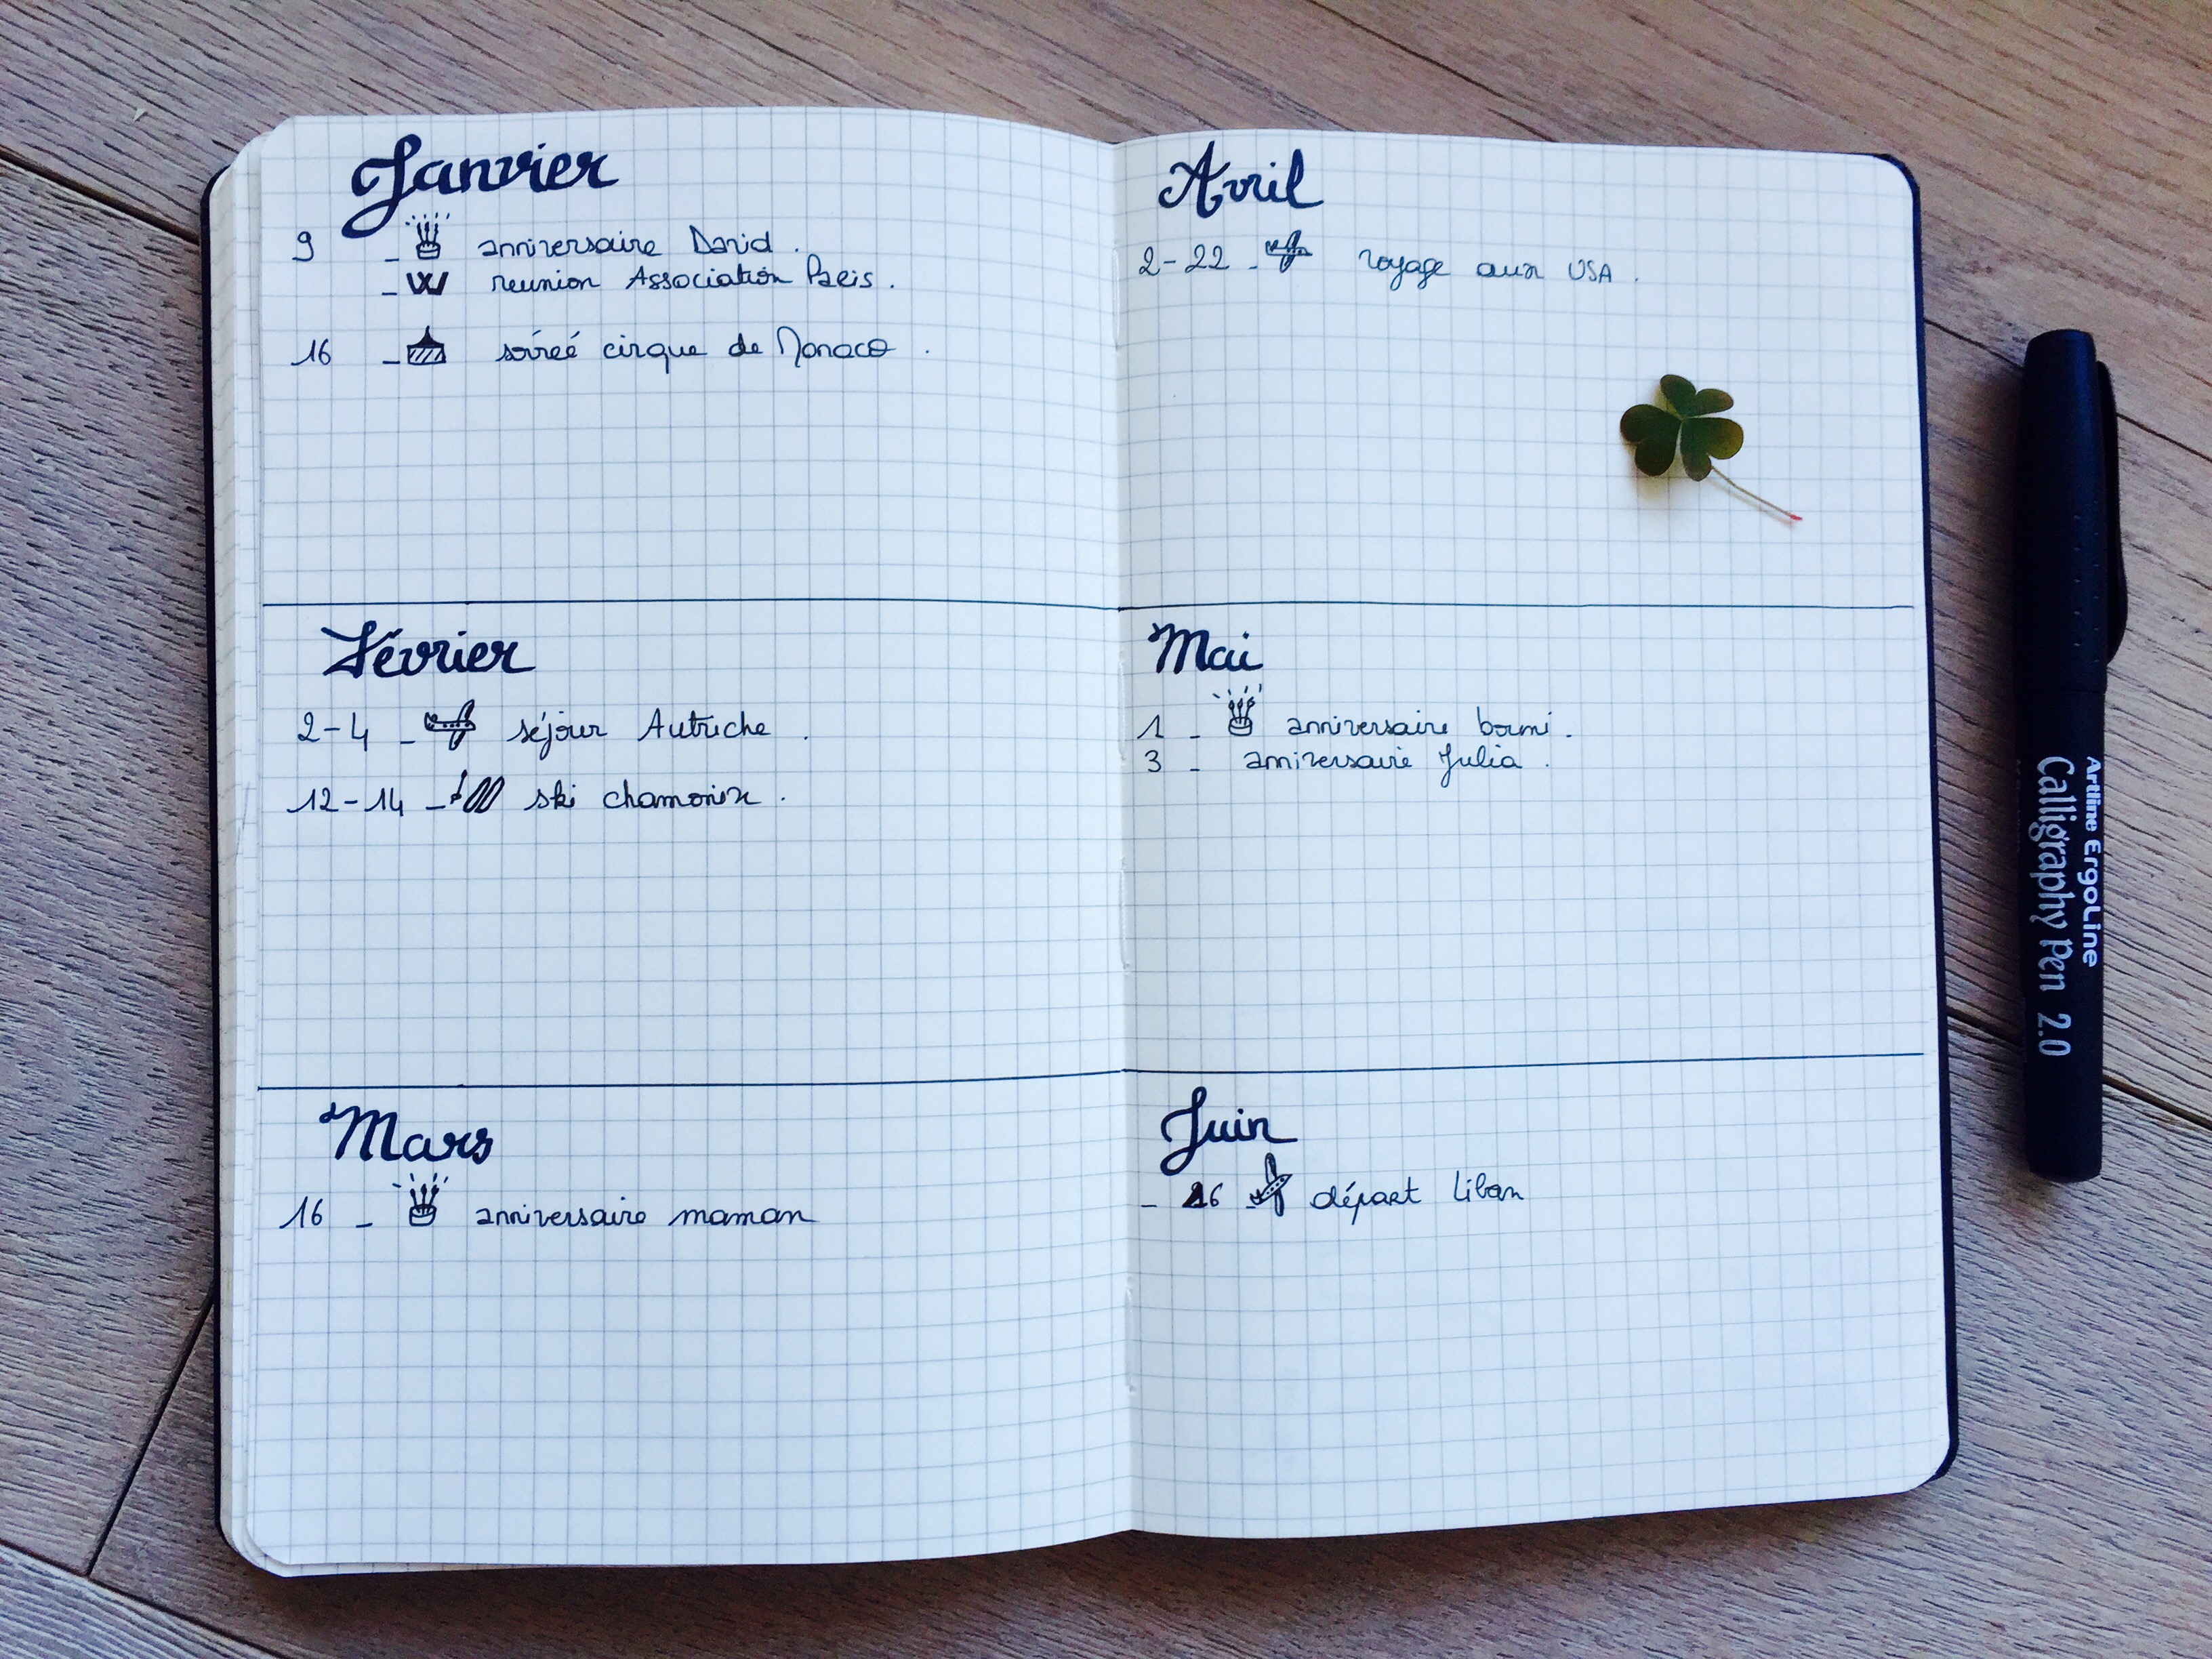 Janvier
9 - anniversaire David.
- reunion Association Paris.
16 - soireé cirque de Monaco.
Février
2-4 - séjour Autriche.
12-14 - ski chamonix.
Mars
16 - anniversaire maman
Avril
2-22 - voyage aux USA.
Mai
1 - anniversaire bormi.
3 - anniversaire Julia.
Juin
- 26 - départ Liban
Artline ErgoLine
Calligraphy Pen 2.0